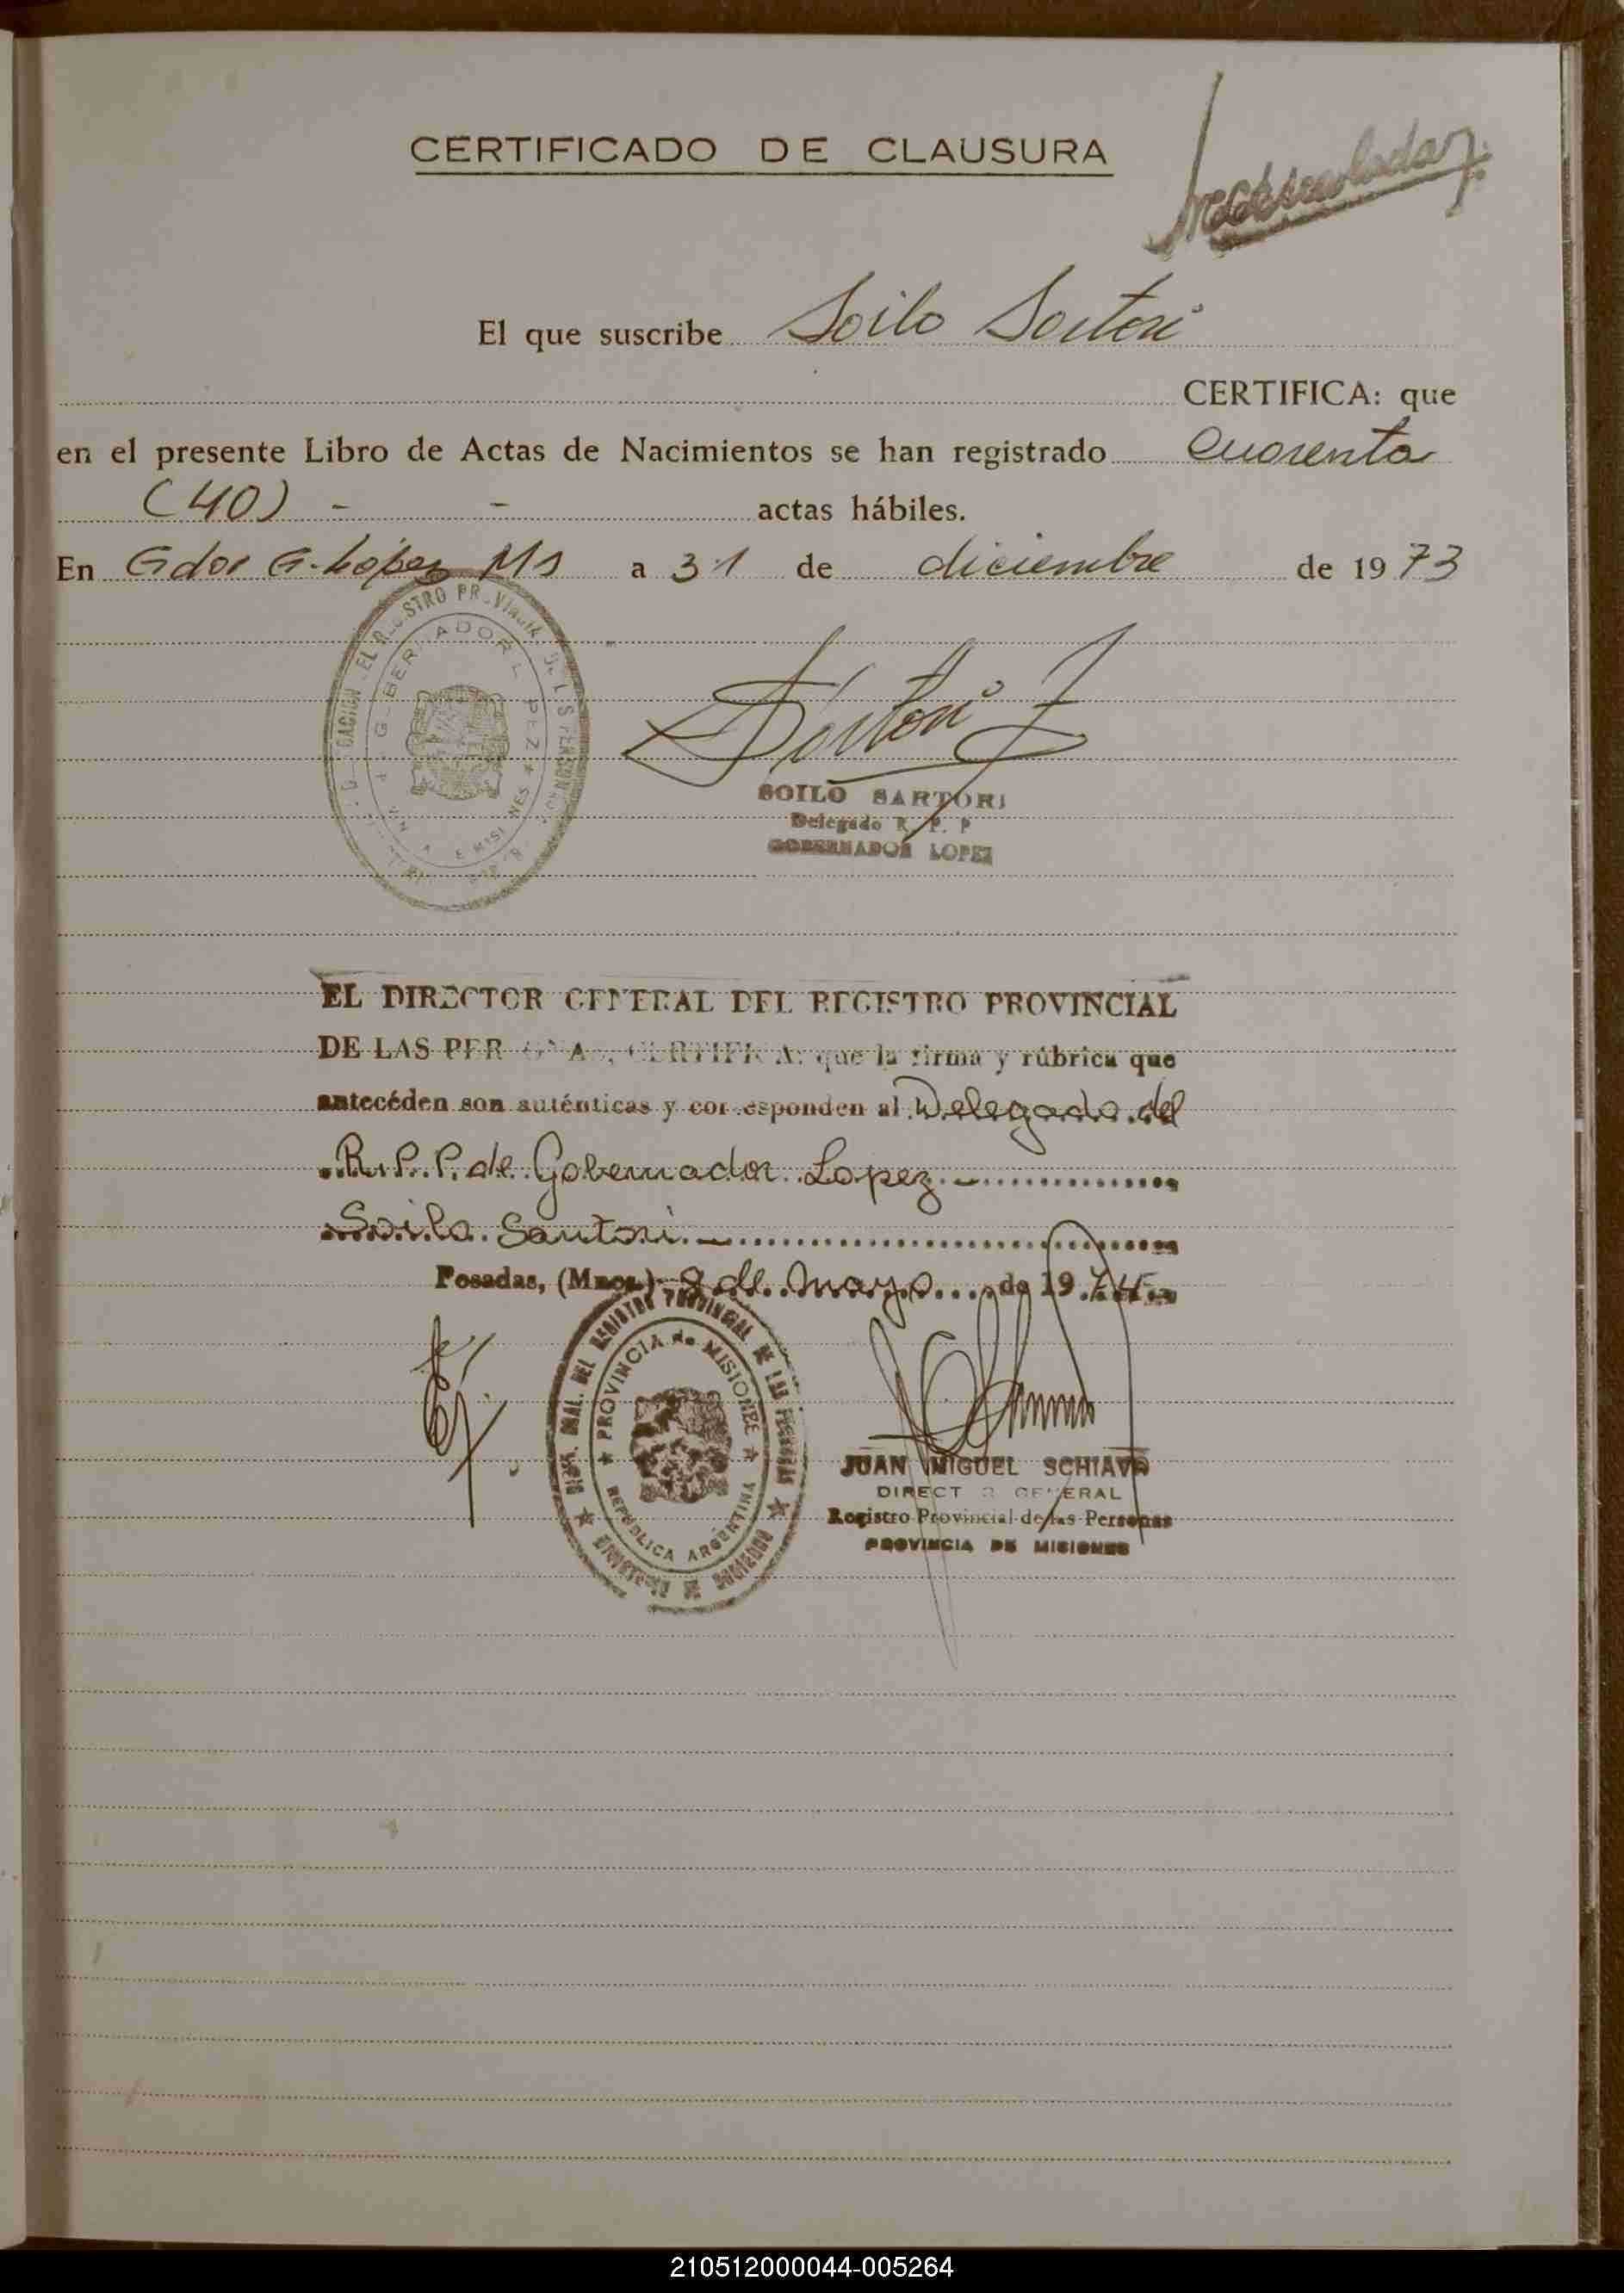 CERTIFICADO DE CLAUSURA
El que suscribe Soilo Sartori
CERTIFICA: que
en el presente Libro de Actas de Nacimientos se han registrado Cuarenta
(40) - - actas hábiles.
En Gdor G. López Ms a 31 de diciembre de 1973
Sartori
SOILO SARTORI
Delegado R. P. P
GOBERNADOR LOPEZ
EL DIRECTOR GENERAL DEL REGISTRO PROVINCIAL
DE LAS PERSONAS, CERTIFICA: que la firma y rúbrica que
antecéden son auténticas y corresponden al Delegado del
R. P. P. de Gobernador Lopez -
Soilo Santori -
Posadas, (Mnes.) 8 de mayo de 1974
DEL REGISTRO PROVINCIAL DE LAS PERSONAS
★ PROVINCIA de MISIONES ★
REPÚBLICA ARGENTINA
JUAN MIGUEL SCHIAVO
DIRECTOR GENERAL
Registro Provincial de las Personas
PROVINCIA DE MISIONES
210512000044-005264